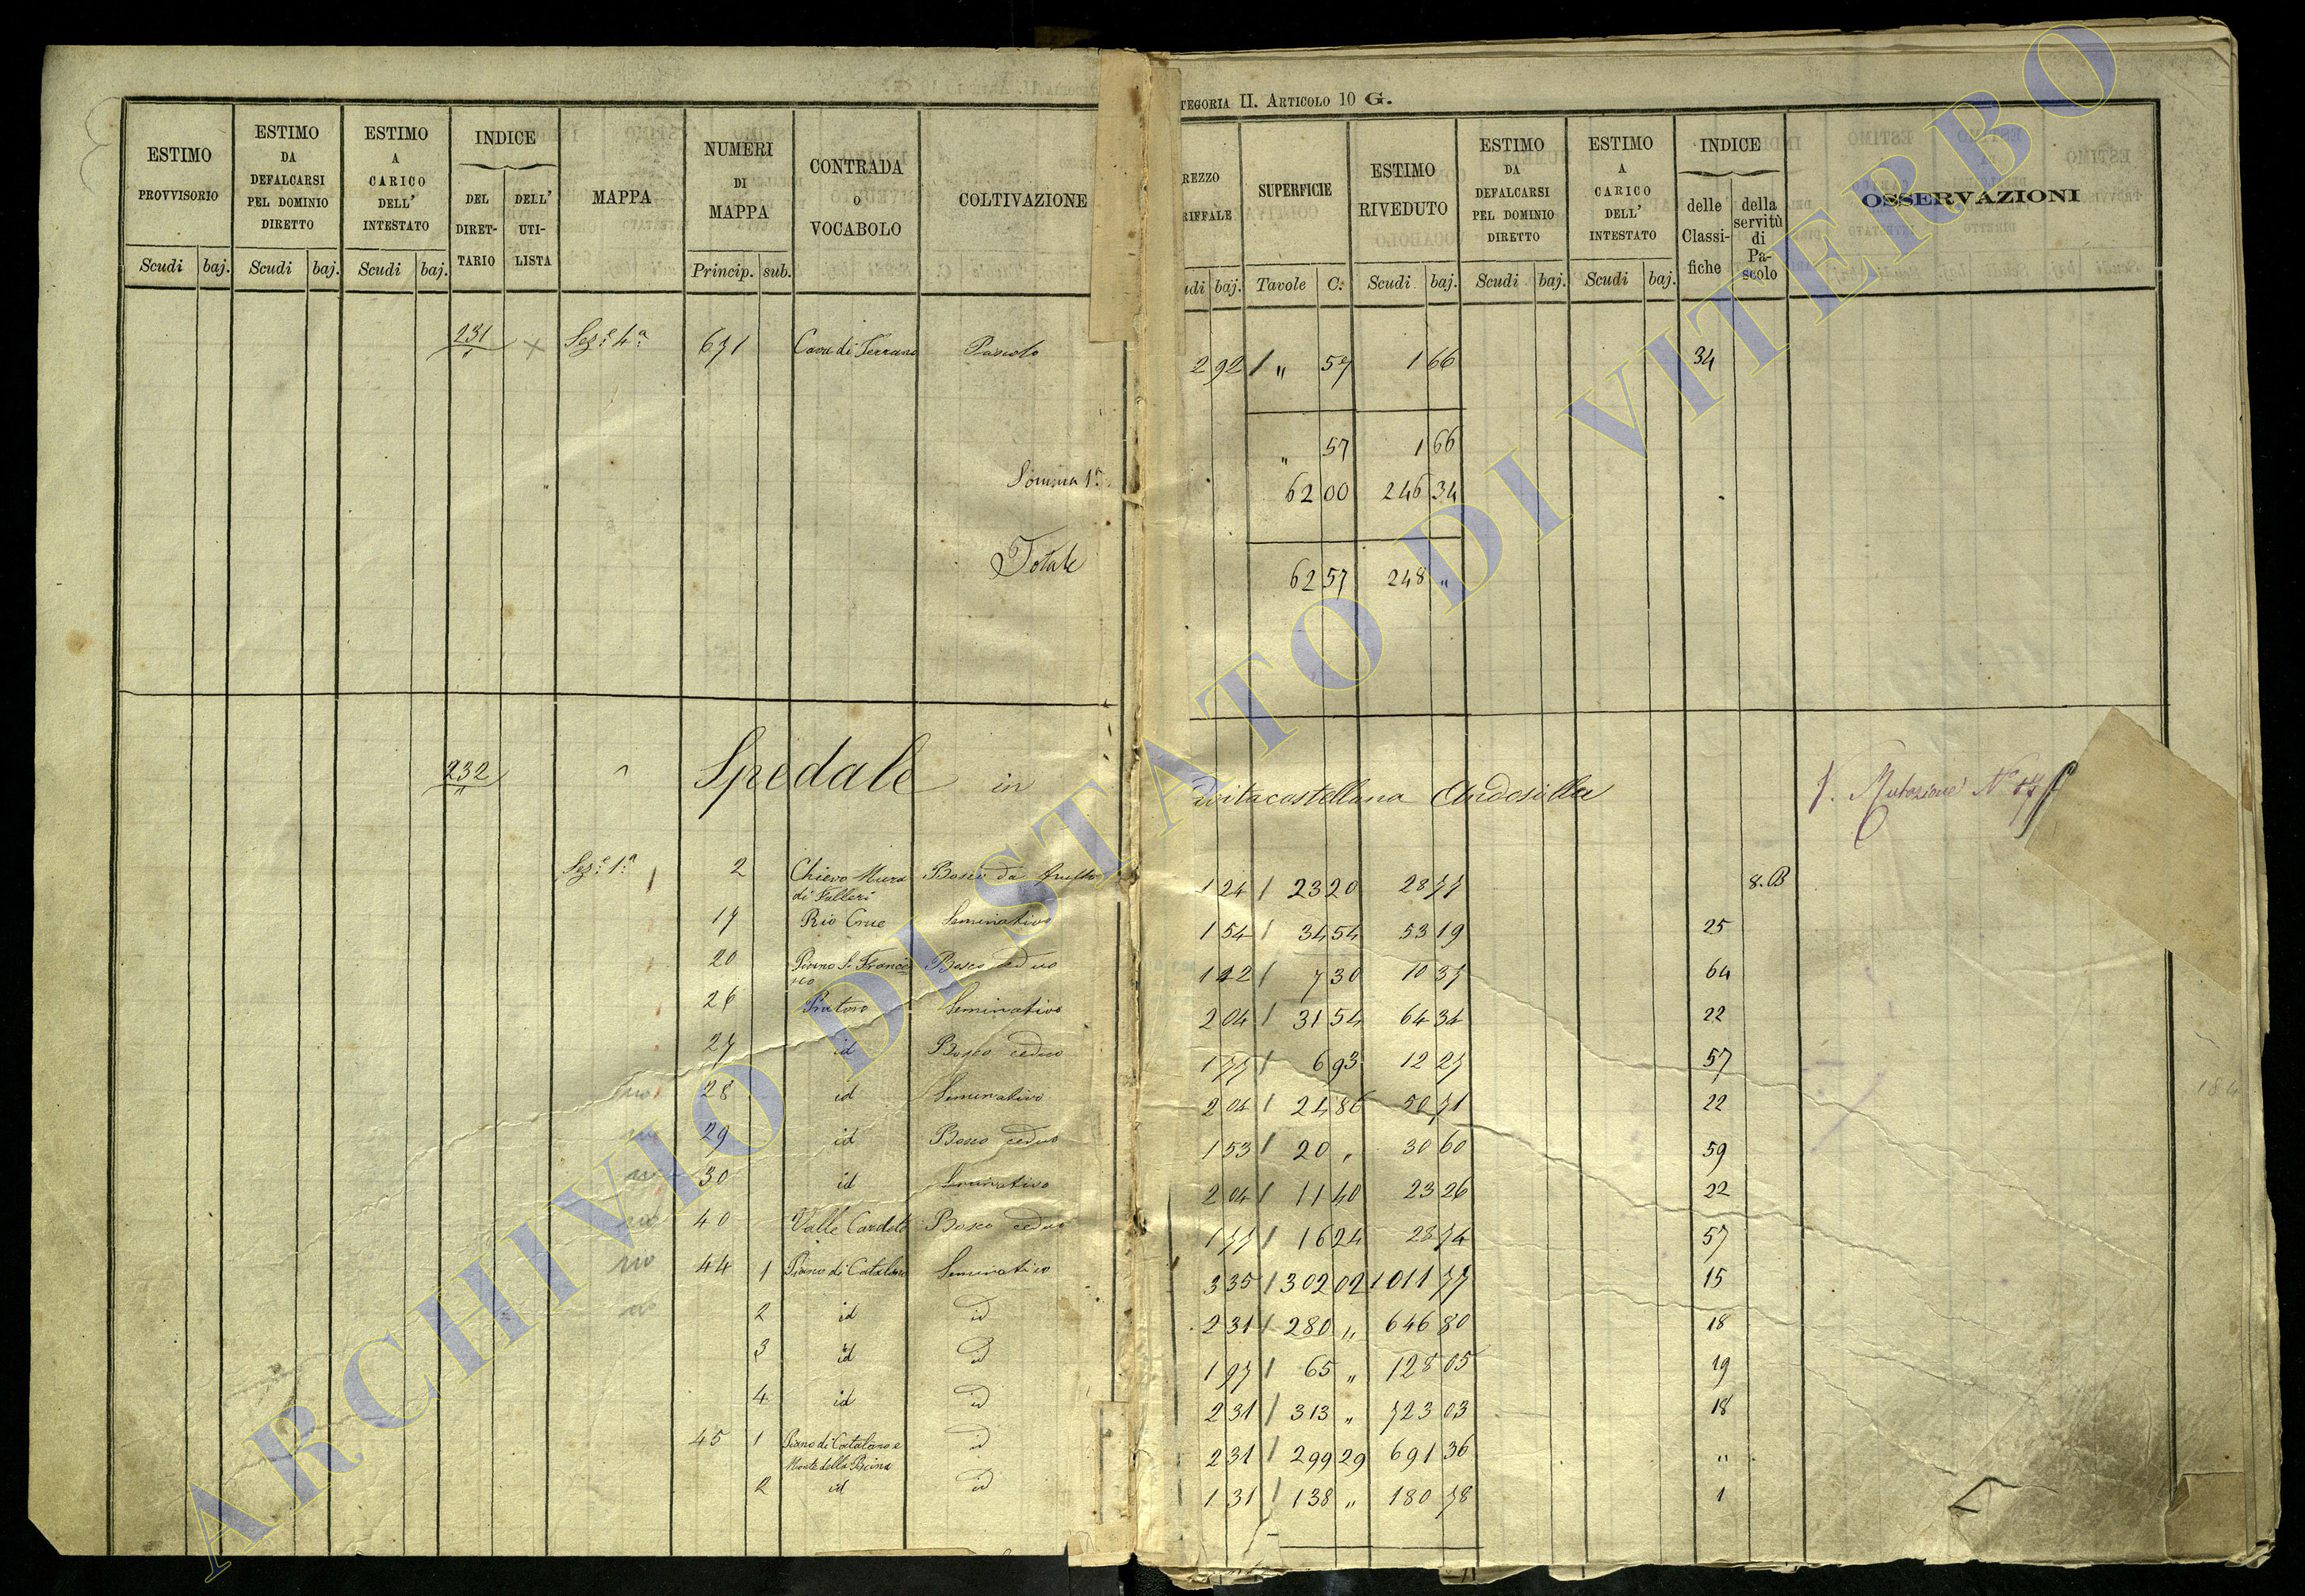 CATEGORIA II. ARTICOLO 10 G.
ESTIMO PROVVISORIO Scudi baj.
ESTIMO DA DEFALCARSI PEL DOMINIO DIRETTO Scudi baj.
ESTIMO A CARICO DELL' INTESTATO Scudi baj.
INDICE DEL DIRET-TARIO DELL' UTI-LISTA
MAPPA
NUMERI DI MAPPA Princip. sub.
CONTRADA o VOCABOLO
COLTIVAZIONE
REZZO RIFFALE udi baj.
SUPERFICIE Tavole C.
ESTIMO RIVEDUTO Scudi baj.
ESTIMO DA DEFALCARSI PEL DOMINIO DIRETTO Scudi baj.
ESTIMO A CARICO DELL' INTESTATO Scudi baj.
INDICE delle Classi-fiche della servitù di Pa-scolo
OSSERVAZIONI
231 " Sez.e 4a 671 Cava di Terrano Pascolo 2 92 / " 57 1 66 34
" 57 1 66
Somma 1a 62 00 246 34
Totale 62 57 248 "
232 " Spedale in Civitacastellana Andosilla V. Mutazione N.
Sez.e 1a 2 Chiero Mura di Falleri Bosco da frutto 1 24 / 23 20 28 77 8.B
17 Rio Crue Seminativo 1 54 / 34 54 53 19 25
20 Piano S. Francesco Bosco ceduo 1 42 / 7 30 10 37 64
26 Pratoro Seminativo 2 04 / 31 54 64 34 22
27 id Bosco ceduo 1 77 / 6 93 12 27 57
no 28 id Seminativo 2 04 / 24 86 50 71 22
no 29 id Bosco ceduo 1 53 / 20 " 30 60 59
no 30 id Seminativo 2 04 / 11 40 23 26 22
no 40 Valle Cardelo Bosco ceduo 1 77 / 16 24 28 74 57
no 44 1 Piano di Catalano Seminativo 3 35 / 302 02 1011 77 15
no 2 id id 2 31 / 280 " 646 80 18
3 id id 1 97 / 65 " 128 05 19
4 id id 2 31 / 313 " 723 03 18
45 1 Piano di Catalano e Monte della Breina id 2 31 / 299 29 691 36 "
2 id id 1 31 / 138 " 180 78 1
ARCHIVIO DI STATO DI VITERBO